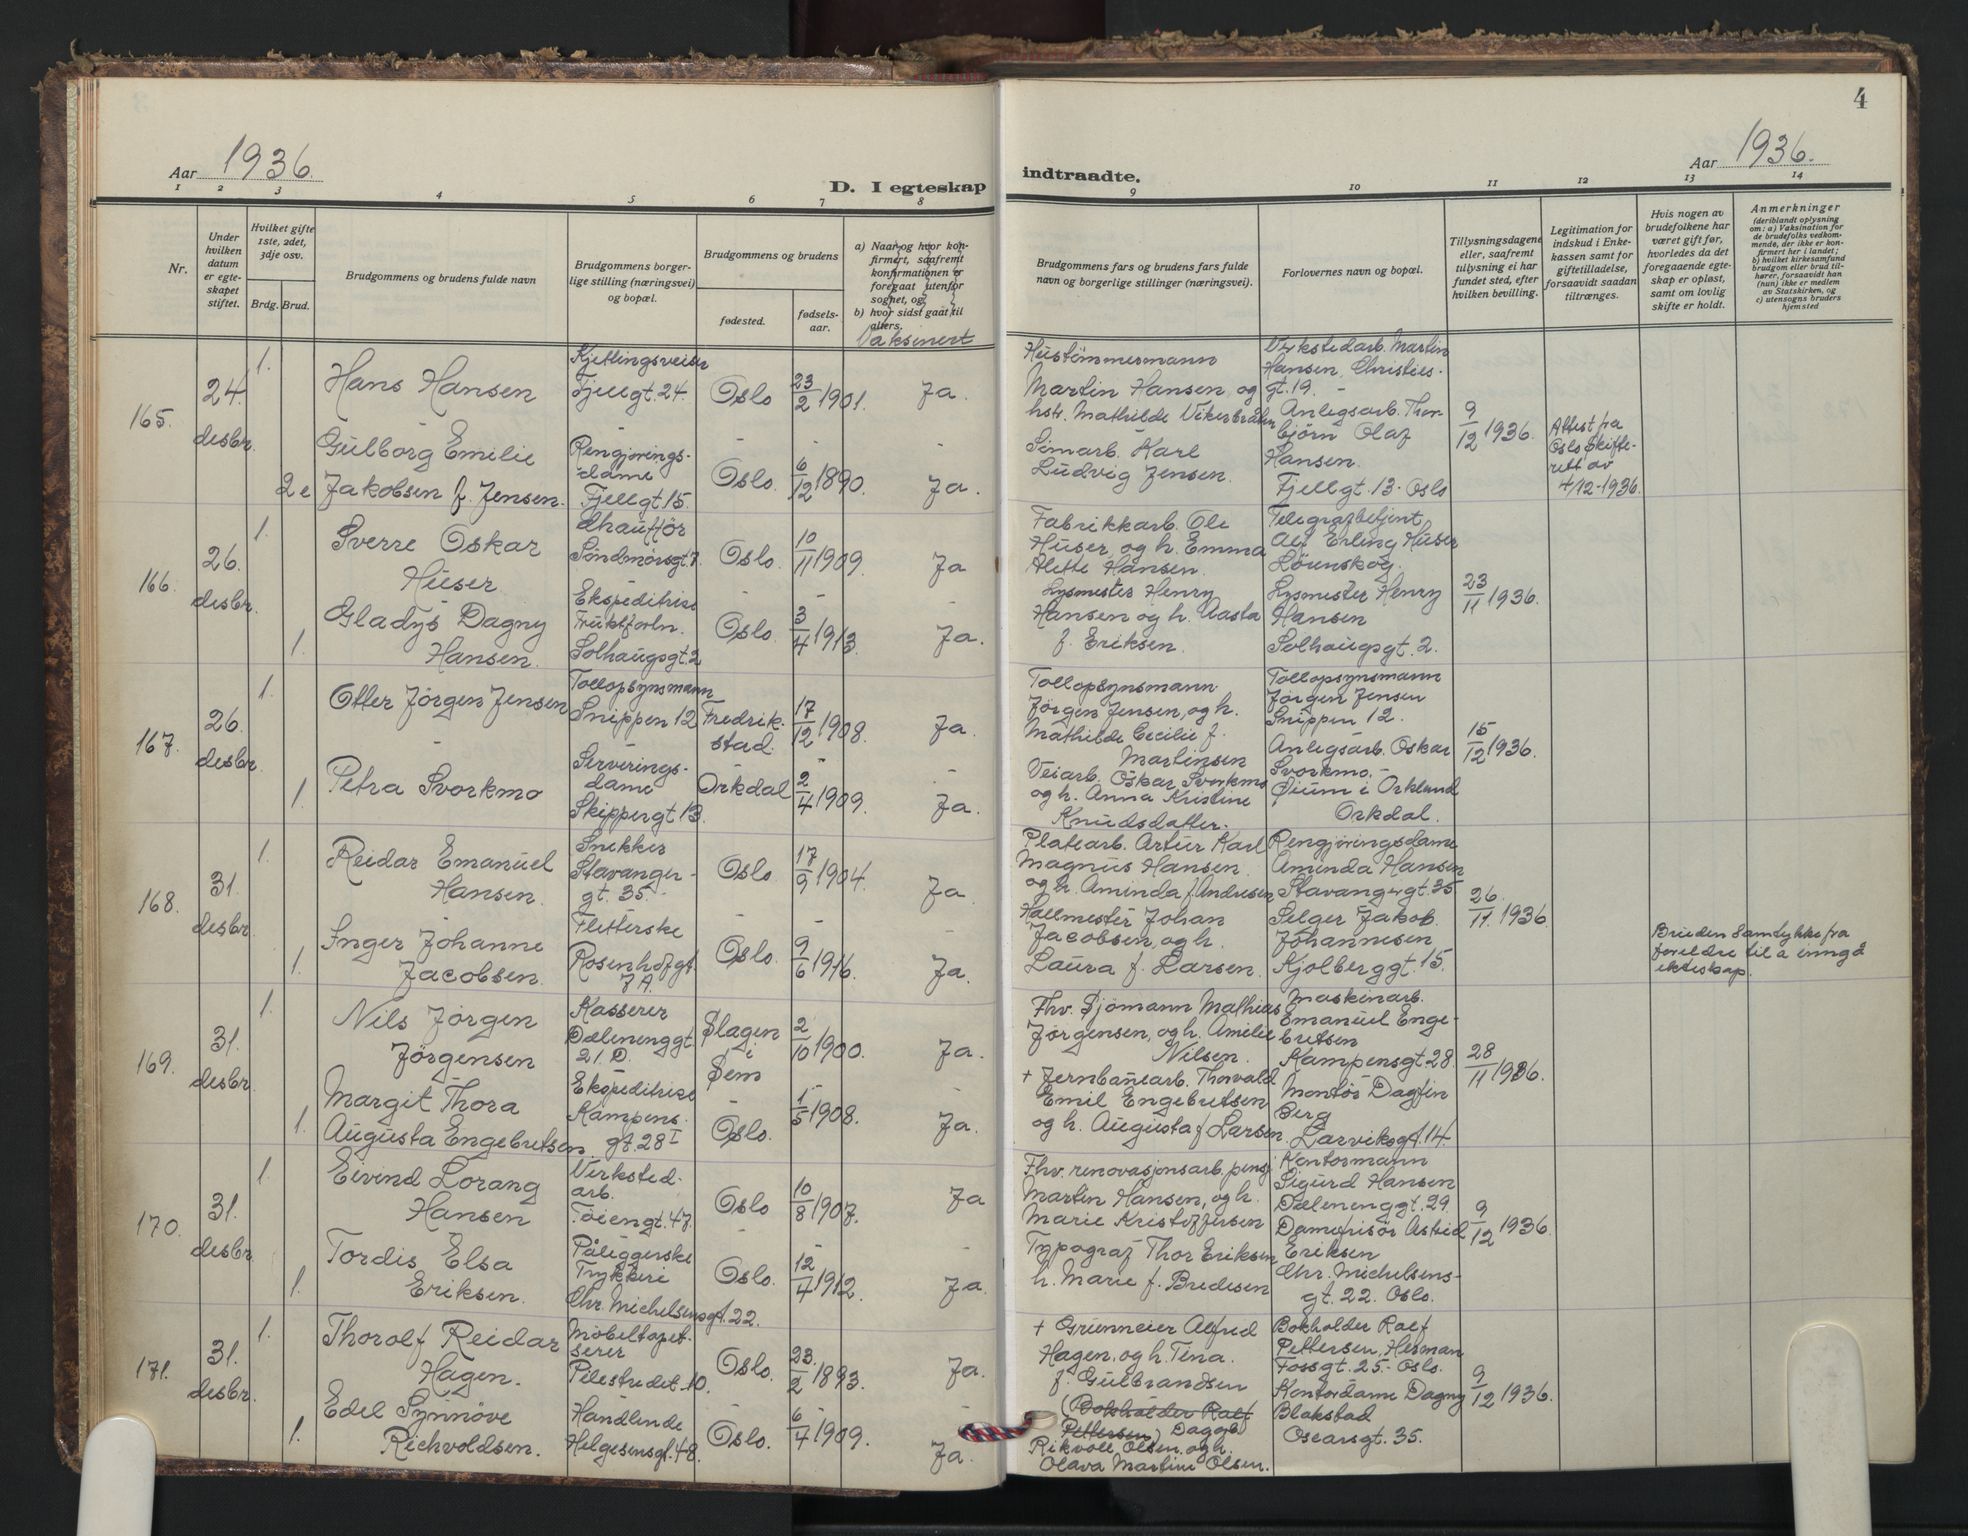 4
Aar 1936.
D. I egteskap
indtraadte.
Aar 1936.
1 2 3 4 5 6 7 8
9 10 11 12 13 14
Nr.
Under hvilken datum er egteskapet stiftet.
Hvilket gifte 1ste, 2det, 3dje osv.
Brdg. Brud.
Brudgommens og brudens fulde navn
Brudgommens borgerlige stilling (næringsvei) og bopæl.
Brudgommens og brudens
fødested.
fødselsaar.
a) Naar og hvor konfirmert, saafremt konfirmationen er foregaat utenfor sognet, og
b) hvor sidst gaat til alters.
Vaksinert
Brudgommens fars og brudens fars fulde navn og borgerlige stillinger (næringsvei).
Forlovernes navn og bopæl.
Tillysningsdagene eller, saafremt tillysning ei har fundet sted, efter hvilken bevilling.
Legitimation for indskud i Enkekassen samt for giftetilladelse, forsaavidt saadan tiltrænges.
Hvis nogen av brudefolkene har været gift før, hvorledes da det foregaaende egteskap er opløst, samt om lovlig skifte er holdt.
Anmerkninger
(deriblandt oplysning om: a) Vaksination for de brudefolks vedkommende, der ikke er konfirmert her i landet; b) hvilket kirkesamfund brudgom eller brud tilhører, forsaavidt han (hun) ikke er medlem av Statskirken, og c) utensogns bruders hjemsted
165.
24. desbr.
1.
Hans Hansen
Fjellgt. 24.
Oslo
23/2 1901.
Ja.
2e
Gulborg Emilie
Jakobsen f. Jensen.
Rengjørings-
dame
Fjellgt 15.
Oslo.
6/12 1890.
Ja.
Hustømmermann
Martin Hansen, og
hstr. Mathilde
Karl
Ludvig Jensen.
Verkstedarb. Martin
Hansen, Christies-
gt. 19. -
Anlegsarb. Thor-
bjørn Olaf
Hansen.
Fjellgt. 13. Oslo
9/12 1936.
Attest fra
Oslo Skifte-
rett av
4/12-1936.
166.
26. desbr.
1.
Sverre Oskar
Huser
Chauffør
Søndmørsgt. 7
Oslo.
10/11 1909.
Ja
1.
Gladys Dagny
Hansen.
Ekspeditrise
Fruktforln.
Solhaugsgt. 2
Oslo.
3/4 1913.
Ja.
Fabrikkarb. Ole
Huser, og h. Emma
Alette Hansen.
Lysmester Henry
Hansen og h. Aasta
f. Eriksen.
Telegrafbetjent
Alf Erling Huser
Lörenskog.
Lysmester Henry
Hansen
Solhaugsgt. 2.
23/11 1936.
167.
26. desbr.
1.
Otter Jörgen Jensen
Tollopsynsmann
Snippen 12
Fredrik-
stad.
17/12 1908.
Ja.
1.
Petra Svorkmo
Serverings-
dame
Skippergt 13.
Orkdal
2/4 1909.
Ja.
Tollopsynsmann
Jörgen Jensen, og h.
Mathilde Cecilie f.
Martinsen
Veiarb. Oskar Svorkmo
og h. Anna Kristine
Knudsdatter.
Tollopsynsmann
Jörgen Jensen
Snippen 12.
Anlegsarb. Oskar
Svorkmo. -
i Orkland
Orkdal.
15/12 1936.
168.
31. desbr.
1.
Reidar Emanuel
Hansen.
Snekker
Stavanger-
gt. 35.
Oslo.
17/9 1904.
Ja.
1.
Inger Johanne
Jacobsen.
Fletterske
Rosenhofgt.
7 A.
Oslo.
9/6 1916.
Ja.
Platearb. Artur Karl
Magnus Hansen.
og h. Aminda f. Andresen
Hallmester Johan
Jacobsen, og h.
Laura f. Larsen.
Rengjøringsdame
Aminda Hansen
Stavangergt. 35
Selger Jakob
Johannesen
Kjolberggt. 15.
26/11 1936
Bruden samtykke fra
foreldre til å inngå
ekteskap.
169.
31. desbr.
1.
Nils Jörgen
Jörgensen
Kasserer
Dælenenggt.
21. D.
Slagen
i
Sem
2/10 1900.
Ja.
1.
Margit Thora
Augusta Engebretsen.
Ekspeditrise
Kampens-
gt. 28 I
Oslo.
1/5 1908.
Ja.
Fhv. Sjömann Mathias
Jørgensen, og h. Amelie
Nilsen.
+ Jernbanearb. Thorvald
Emil Engebretsen
og h. Augusta f. Larsen.
Maskinarb.
Emanuel Enge-
bretsen
Kampensgt. 28
Montör Dagfin
Berg
Larviksgt. 14.
28/11 1936.
170.
31. desbr.
1.
Eivind Lorang
Hansen
Verksted-
arb.
Töiengt. 47.
Oslo
10/8 1907.
Ja
1.
Tordis Elsa
Eriksen.
Påliggerske
Trykkeri
Chr. Michelsensgt. 22.
Oslo.
12/4 1912.
Ja.
Fhv. renovasjonsarb. pens.
Martin Hansen, og h.
Marie Kristoffersen
Typograf Thor Eriksen
h. Marie f. Bredesen
Kontormann
Sigurd Hansen
Dælenenggt. 29.
Damefrisör Astrid
Eriksen
Chr. Michelsens-
gt. 22. Oslo.
9/12 1936
171.
31. desbr.
1.
Thorolf Reidar
Hagen.
Möbeltapet-
serer
Pilestredet. 10.
Oslo.
23/2 1893.
Ja.
1.
Edel Synnöve
Richvoldsen.
Handlende
Helgesensgt. 48.
Oslo.
6/4 1909.
Ja.
+ Alfred
Hagen, og h. Tina.
f. Gulbrandsen
(Bokholder Ralf
Pettersen)
Rikvoll Olsen, og h.
Olava Martine Olsen.
Bokholder Ralf
Pettersen, Herman
Fossgt. 25. Oslo.
Kontordame Dagny
Blakstad
Oscarsgt. 35.
9/12 1936.